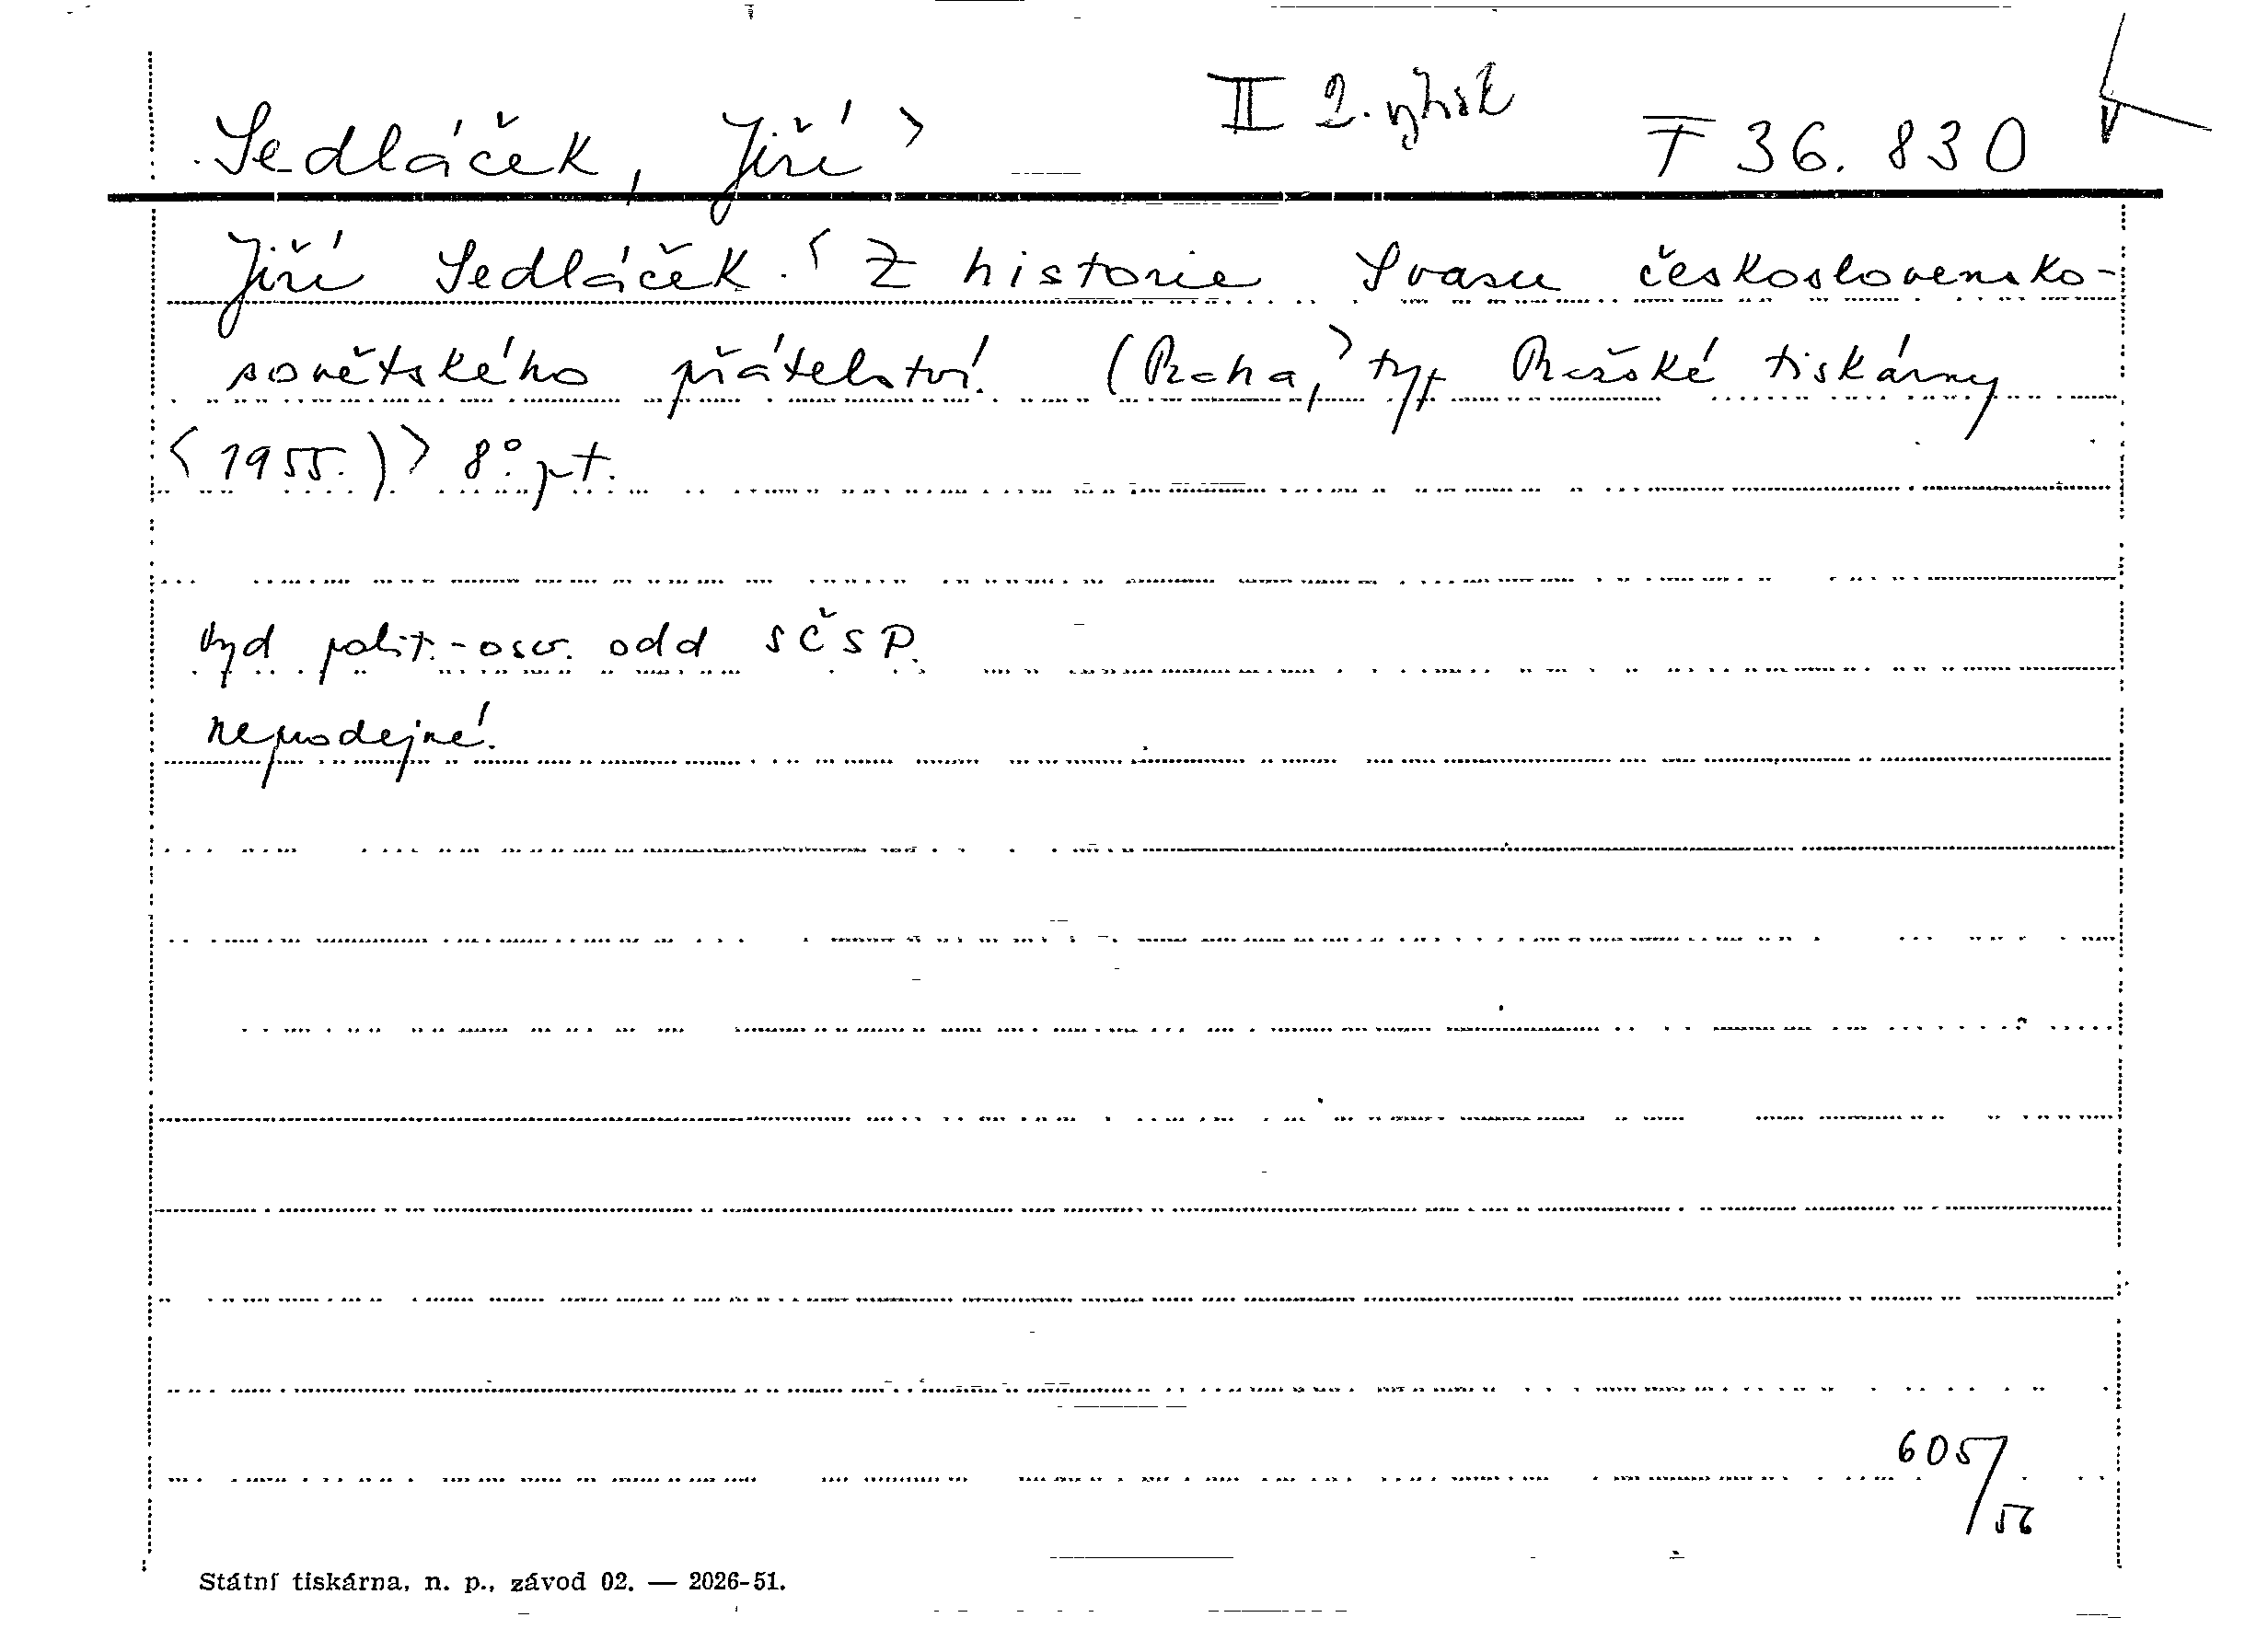 II 2. výtisk
Sedláček, Jiří > T 36.830
Jiří Sedláček. < Z historie Svazu československo-
sovětského přátelství. (Praha, > typ Pražské tiskárny
< 1955.) > 8° pt.
Vyd polit.-osv. odd SČSP.
Neprodejné.
605/56
Státní tiskárna, n. p., závod 02. — 2026-51.